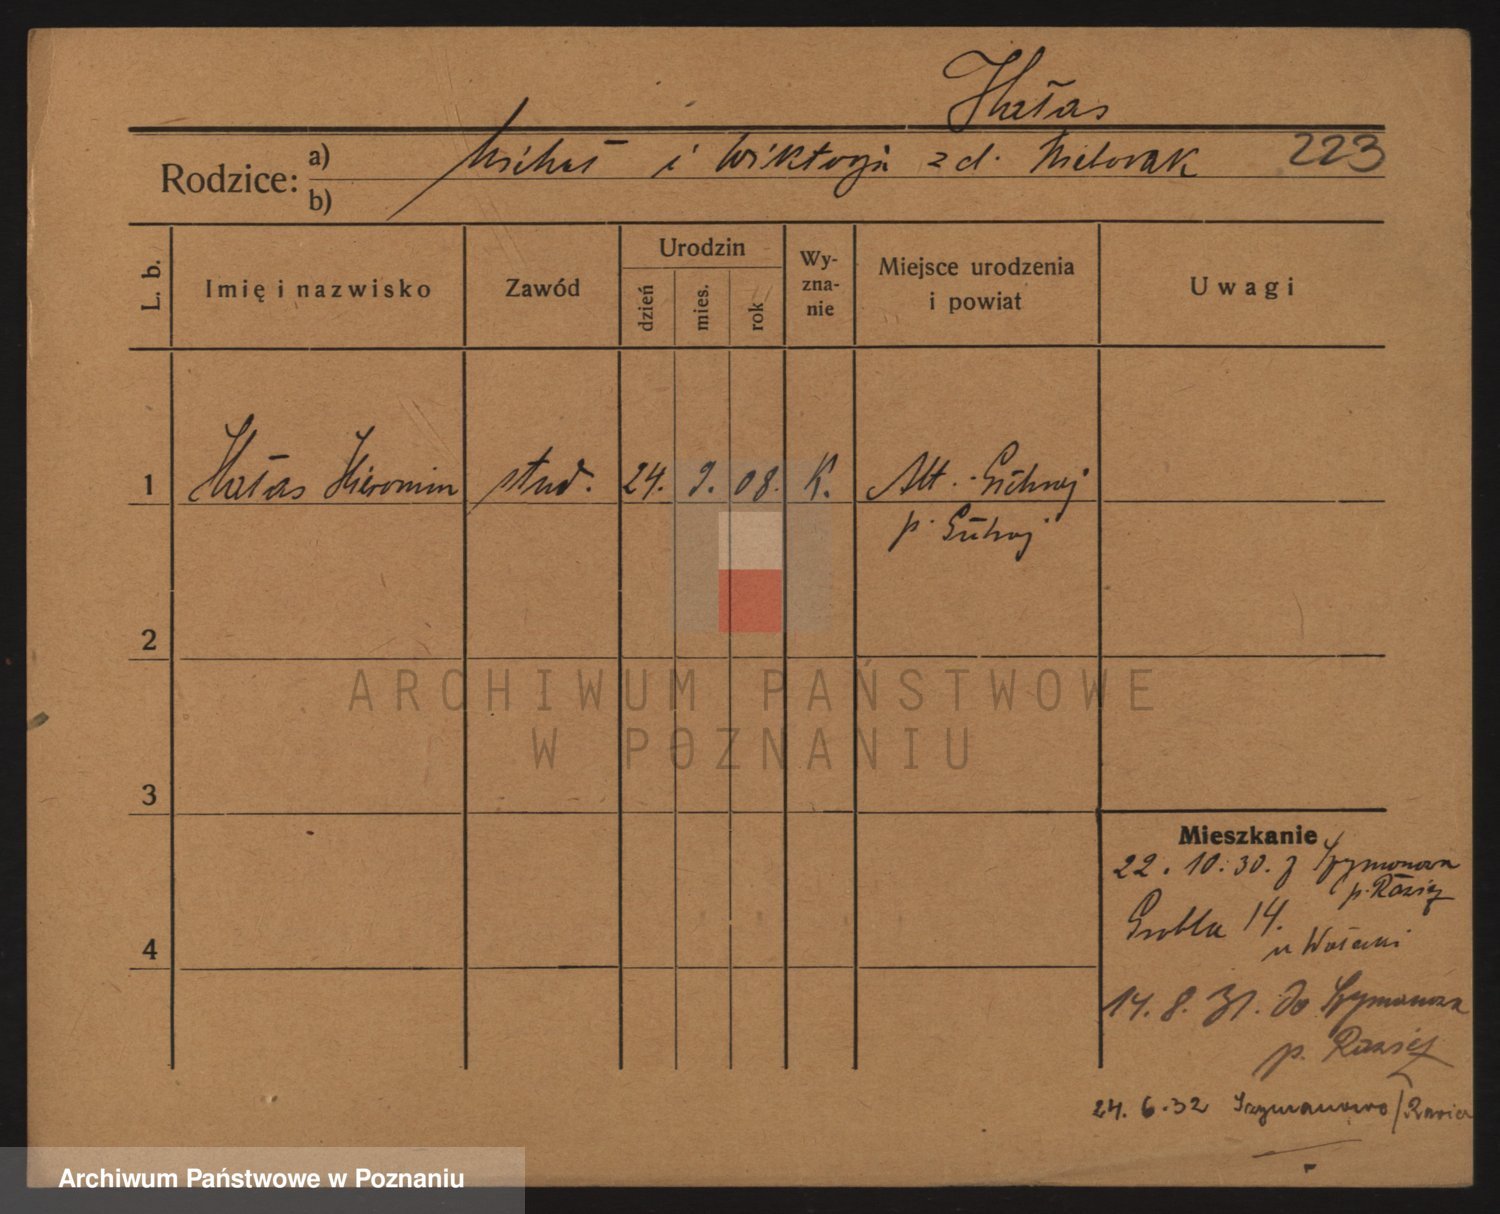 Hałas
Rodzice: a) Michał i Wiktorja zd. 223
b)
L. b.
Imię i nazwisko
Zawód
Urodzin
dzień
mies.
rok
Wy-
zna-
nie
Miejsce urodzenia
i powiat
Uwagi
1 Hałas Hieronim stud. 24. 9. 08. K. Alt.-
p.
2
3
4
ARCHIWUM PAŃSTWOWE
W POZNANIU
Mieszkanie
22. 10. 30. z
p.
Grobla 14.
u
14. 8. 31. do
p.
24. 6. 32 Szymanowo/Rawicz
Archiwum Państwowe w Poznaniu